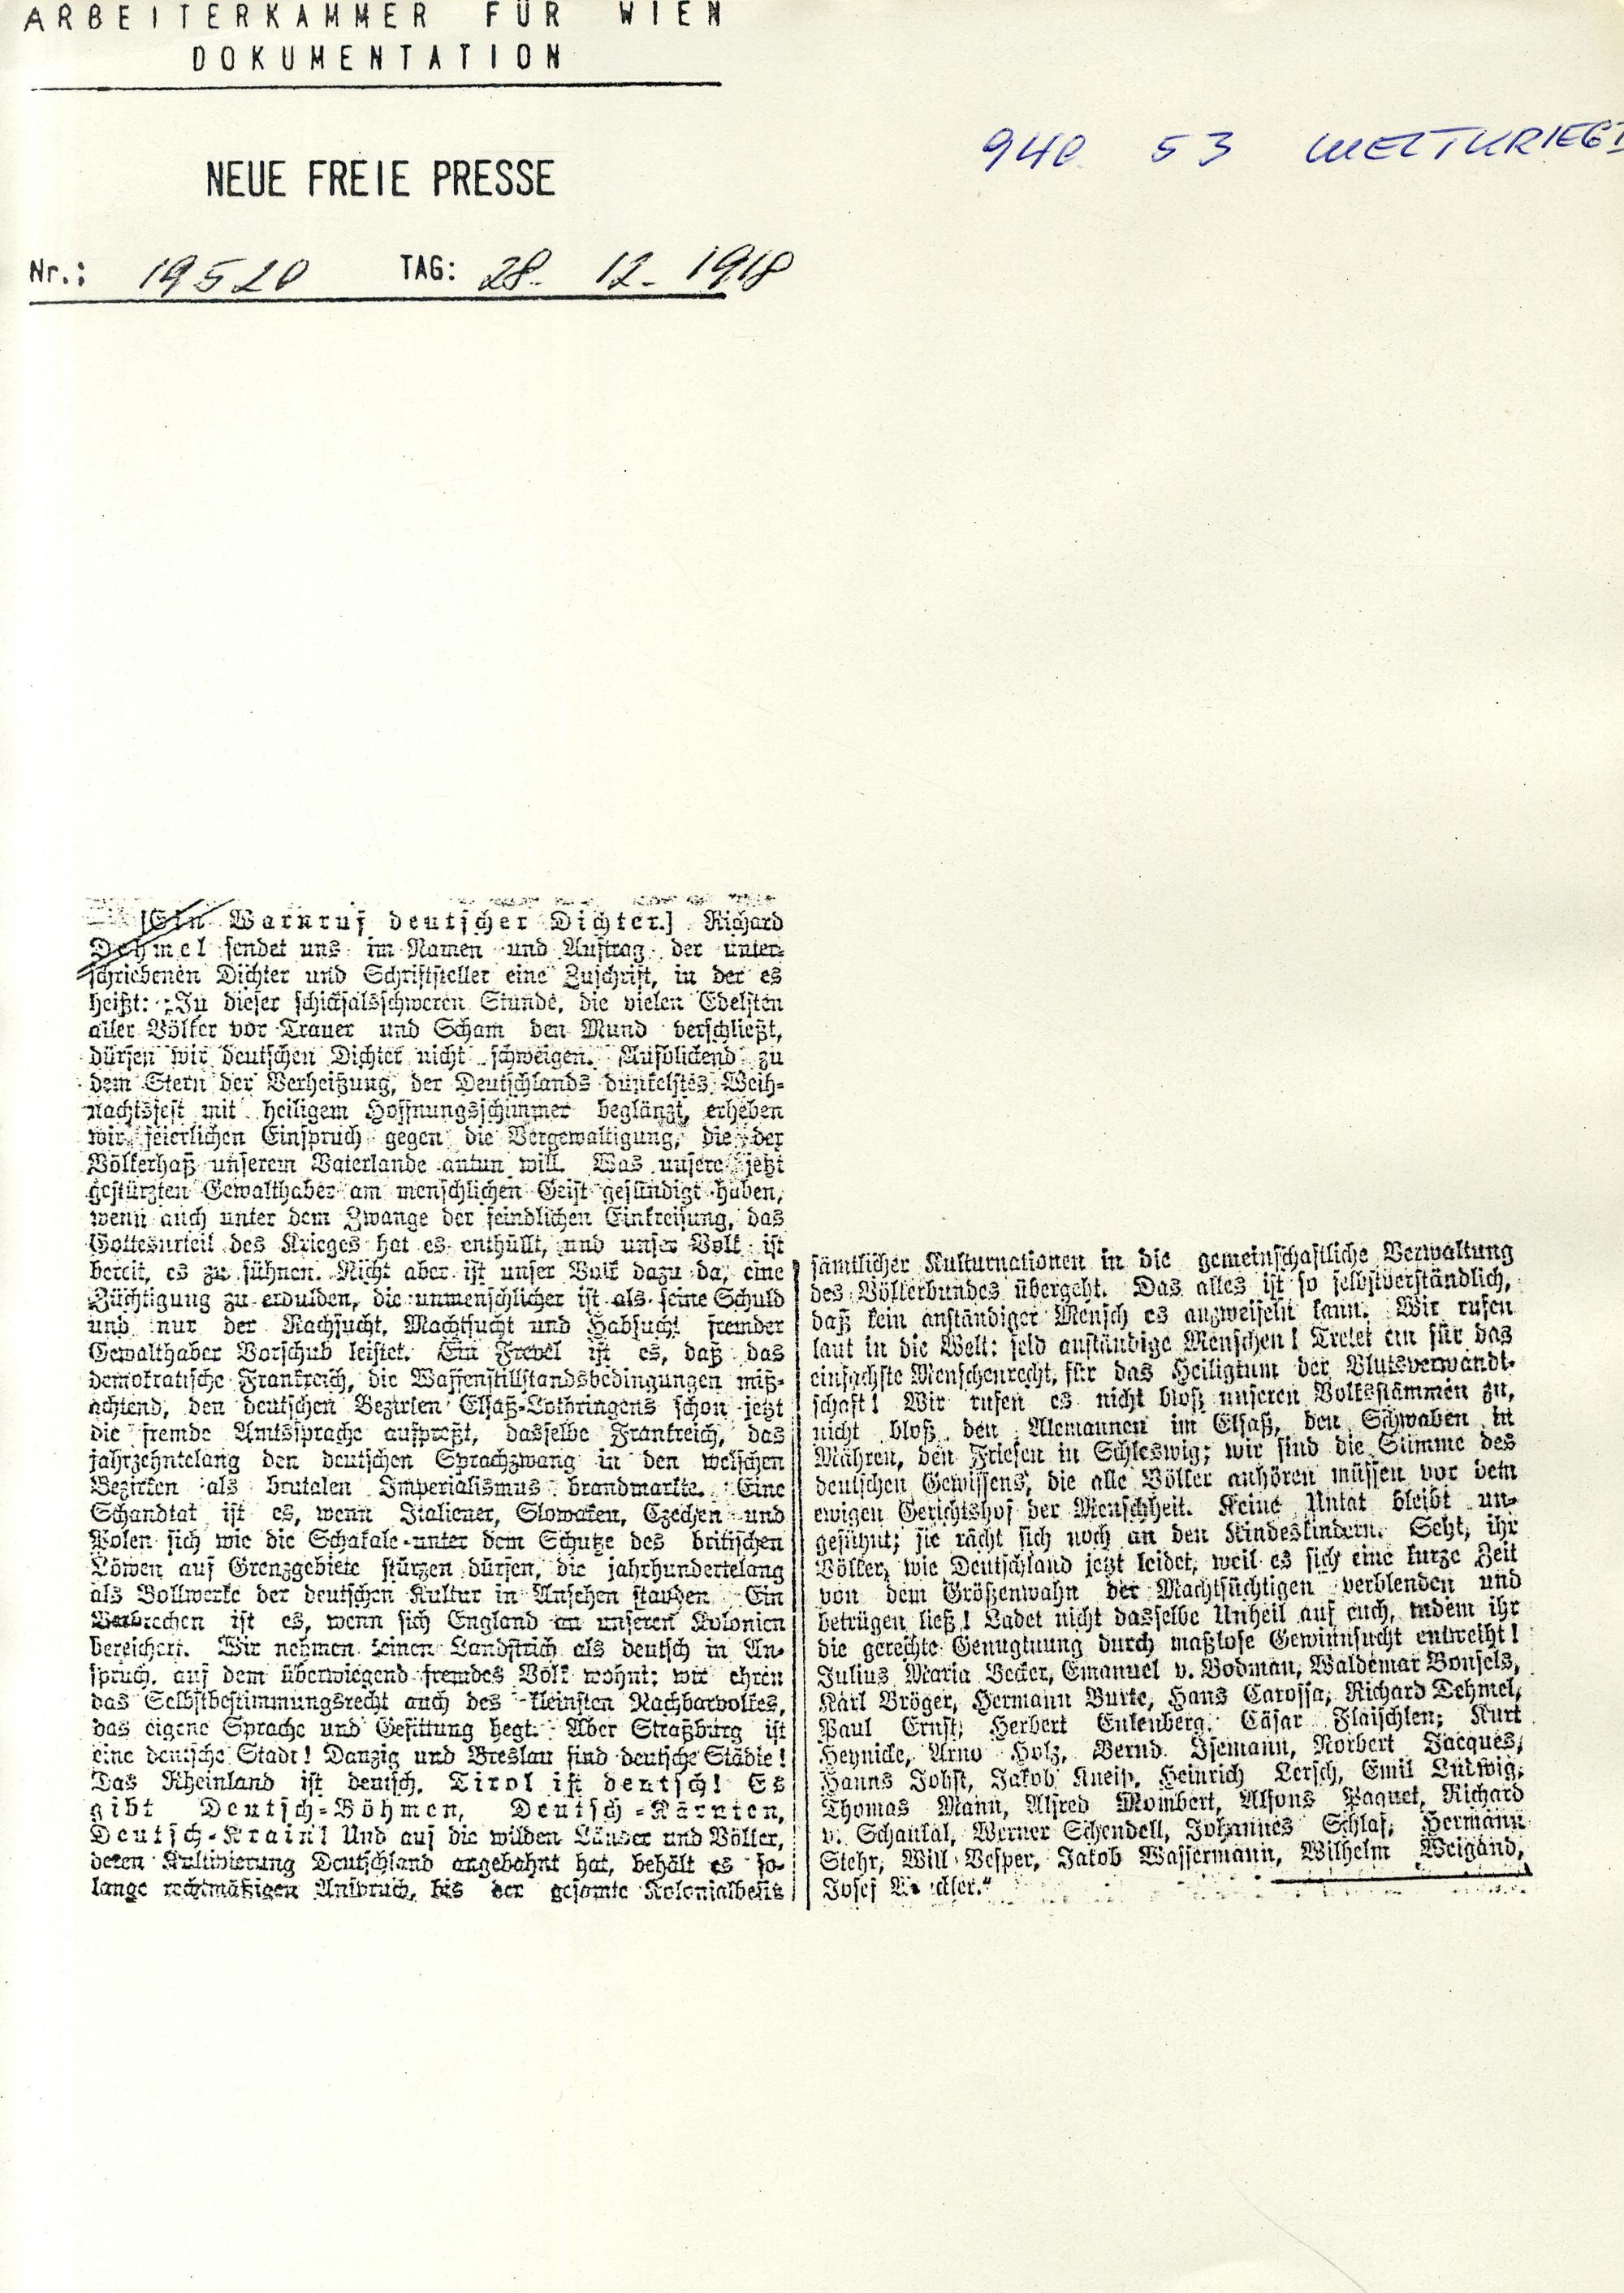 ARBEITERKAMMER FÜR WIEN
DOKUMENTATION
940 53 WELTKRIEG I
NEUE FREIE PRESSE
Nr.: 19520 TAG: 28. 12. 1918
[Ein Warnruf deutscher Dichter.] Richard
Dehmel sendet uns im Namen und Auftrag der unter-
schriebenen Dichter und Schriftsteller eine Zuschrift, in der es
heißt: „In dieser schicksalsschweren Stunde, die vielen Edelsten
aller Völker vor Trauer und Scham den Mund verschließt,
dürfen wir deutschen Dichter nicht schweigen. Aufblickend zu
dem Stern der Verheißung, der Deutschlands dunkelstes Weih-
nachtsfest mit heiligem Hoffnungsschimmer beglänzt, erheben
wir feierlichen Einspruch gegen die Vergewaltigung, die der
Völkerhaß unserem Vaterlande antun will. Was unsere jetzt
gestürzten Gewalthaber am menschlichen Geist gesündigt haben,
wenn auch unter dem Zwange der feindlichen Einkreisung, das
Gottesurteil des Krieges hat es enthüllt, und unser Volk ist
bereit, es zu sühnen. Nicht aber ist unser Volk dazu da, eine
Züchtigung zu erdulden, die unmenschlicher ist als seine Schuld
und nur der Rachsucht, Machtsucht und Habsucht fremder
Gewalthaber Vorschub leistet. Ein Frevel ist es, daß das
demokratische Frankreich, die Waffenstillstandsbedingungen miß-
achtend, den deutschen Bezirken Elsaß-Lothringens schon jetzt
die fremde Amtssprache aufpreßt, dasselbe Frankreich, das
jahrzehntelang den deutschen Sprachzwang in den welschen
Bezirken als brutalen Imperialismus brandmarkte. Eine
Schandtat ist es, wenn Italiener, Slowaken, Czechen und
Polen sich wie die Schakale unter dem Schutze des britischen
Löwen auf Grenzgebiete stürzen dürfen, die jahrhundertelang
als Bollwerke der deutschen Kultur in Ansehen standen. Ein
Verbrechen ist es, wenn sich England an unseren Kolonien
bereichert. Wir nehmen keinen Landstrich als deutsch in An-
spruch, auf dem überwiegend fremdes Volk wohnt; wir ehren
das Selbstbestimmungsrecht auch des kleinsten Nachbarvolkes,
das eigene Sprache und Gesittung hegt. Aber Straßburg ist
eine deutsche Stadt! Danzig und Breslau sind deutsche Städte!
Das Rheinland ist deutsch. Tirol ist deutsch! Es
gibt Deutsch-Böhmen, Deutsch-Kärnten,
Deutsch-Krain! Und auf die wilden Länder und Völker,
deren Kultivierung Deutschland angebahnt hat, behält es so-
lange rechtmäßigen Anspruch, bis der gesamte Kolonialbesitz
sämtlicher Kulturnationen in die gemeinschaftliche Verwaltung
des Völkerbundes übergeht. Das alles ist so selbstverständlich,
daß kein anständiger Mensch es anzweifeln kann. Wir rufen
laut in die Welt: seid anständige Menschen! Tretet ein für das
einfachste Menschenrecht, für das Heiligtum der Blutsverwandt-
schaft! Wir rufen es nicht bloß unseren Volksstämmen zu,
nicht bloß den Alemannen im Elsaß, den Schwaben in
Mähren, den Friesen in Schleswig; wir sind die Stimme des
deutschen Gewissens, die alle Völker anhören müssen vor dem
ewigen Gerichtshof der Menschheit. Keine Untat bleibt un-
gesühnt; sie rächt sich noch an den Kindeskindern. Seht, ihr
Völker, wie Deutschland jetzt leidet, weil es sich eine kurze Zeit
von dem Größenwahn der Machtsüchtigen verblenden und
betrügen ließ! Ladet nicht dasselbe Unheil auf euch, indem ihr
die gerechte Genugtuung durch maßlose Gewinnsucht entweiht!
Julius Maria Becker, Emanuel v. Bodman, Waldemar Bonsels,
Karl Bröger, Hermann Burte, Hans Carossa, Richard Dehmel,
Paul Ernst, Herbert Eulenberg, Cäsar Flaischlen, Kurt
Heynicke, Arno Holz, Bernd Isemann, Norbert Jacques,
Hanns Johst, Jakob Kneip, Heinrich Lersch, Emil Ludwig,
Thomas Mann, Alfred Mombert, Alfons Paquet, Richard
v. Schaukal, Werner Schendell, Johannes Schlaf, Hermann
Stehr, Will Vesper, Jakob Wassermann, Wilhelm Weigand,
Josef